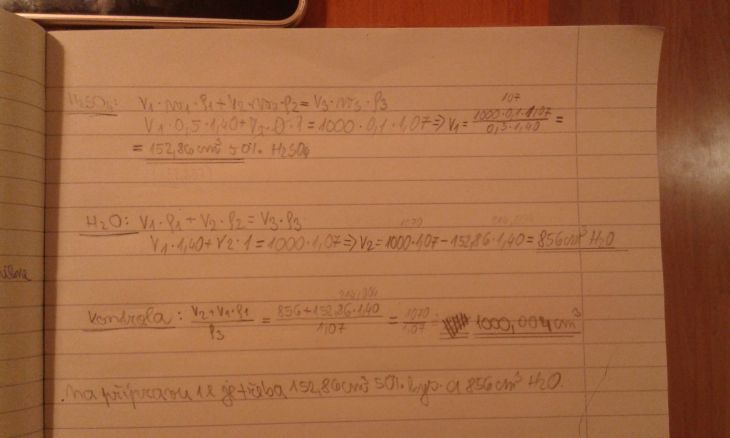 H₂SO₄: V₁·w₁·ρ₁+V₂·w₂·ρ₂=V₃·w₃·ρ₃
107
V₁·0,5·1,40+V₂·0·1=1000·0,1·1,07⇒V₁= (1000·0,1·1,07)/(0,5·1,40) =
= 152,86cm³ 50%. H₂SO₄
H₂O: V₁·ρ₁+V₂·ρ₂=V₃·ρ₃
1070
V₁·1,40+V₂·1=1000·1,07⇒V₂=1000·1,07−152,86·1,40=856cm³ H₂O
214,004
kontrola: (V₂+V₁·ρ₁)/ρ₃ = (856+152,86·1,40)/1,07 = 1070/1,07 = 1000,004 cm³
Na přípravu 1l je třeba 152,86cm³ 50%. kys. a 856cm³ H₂O.